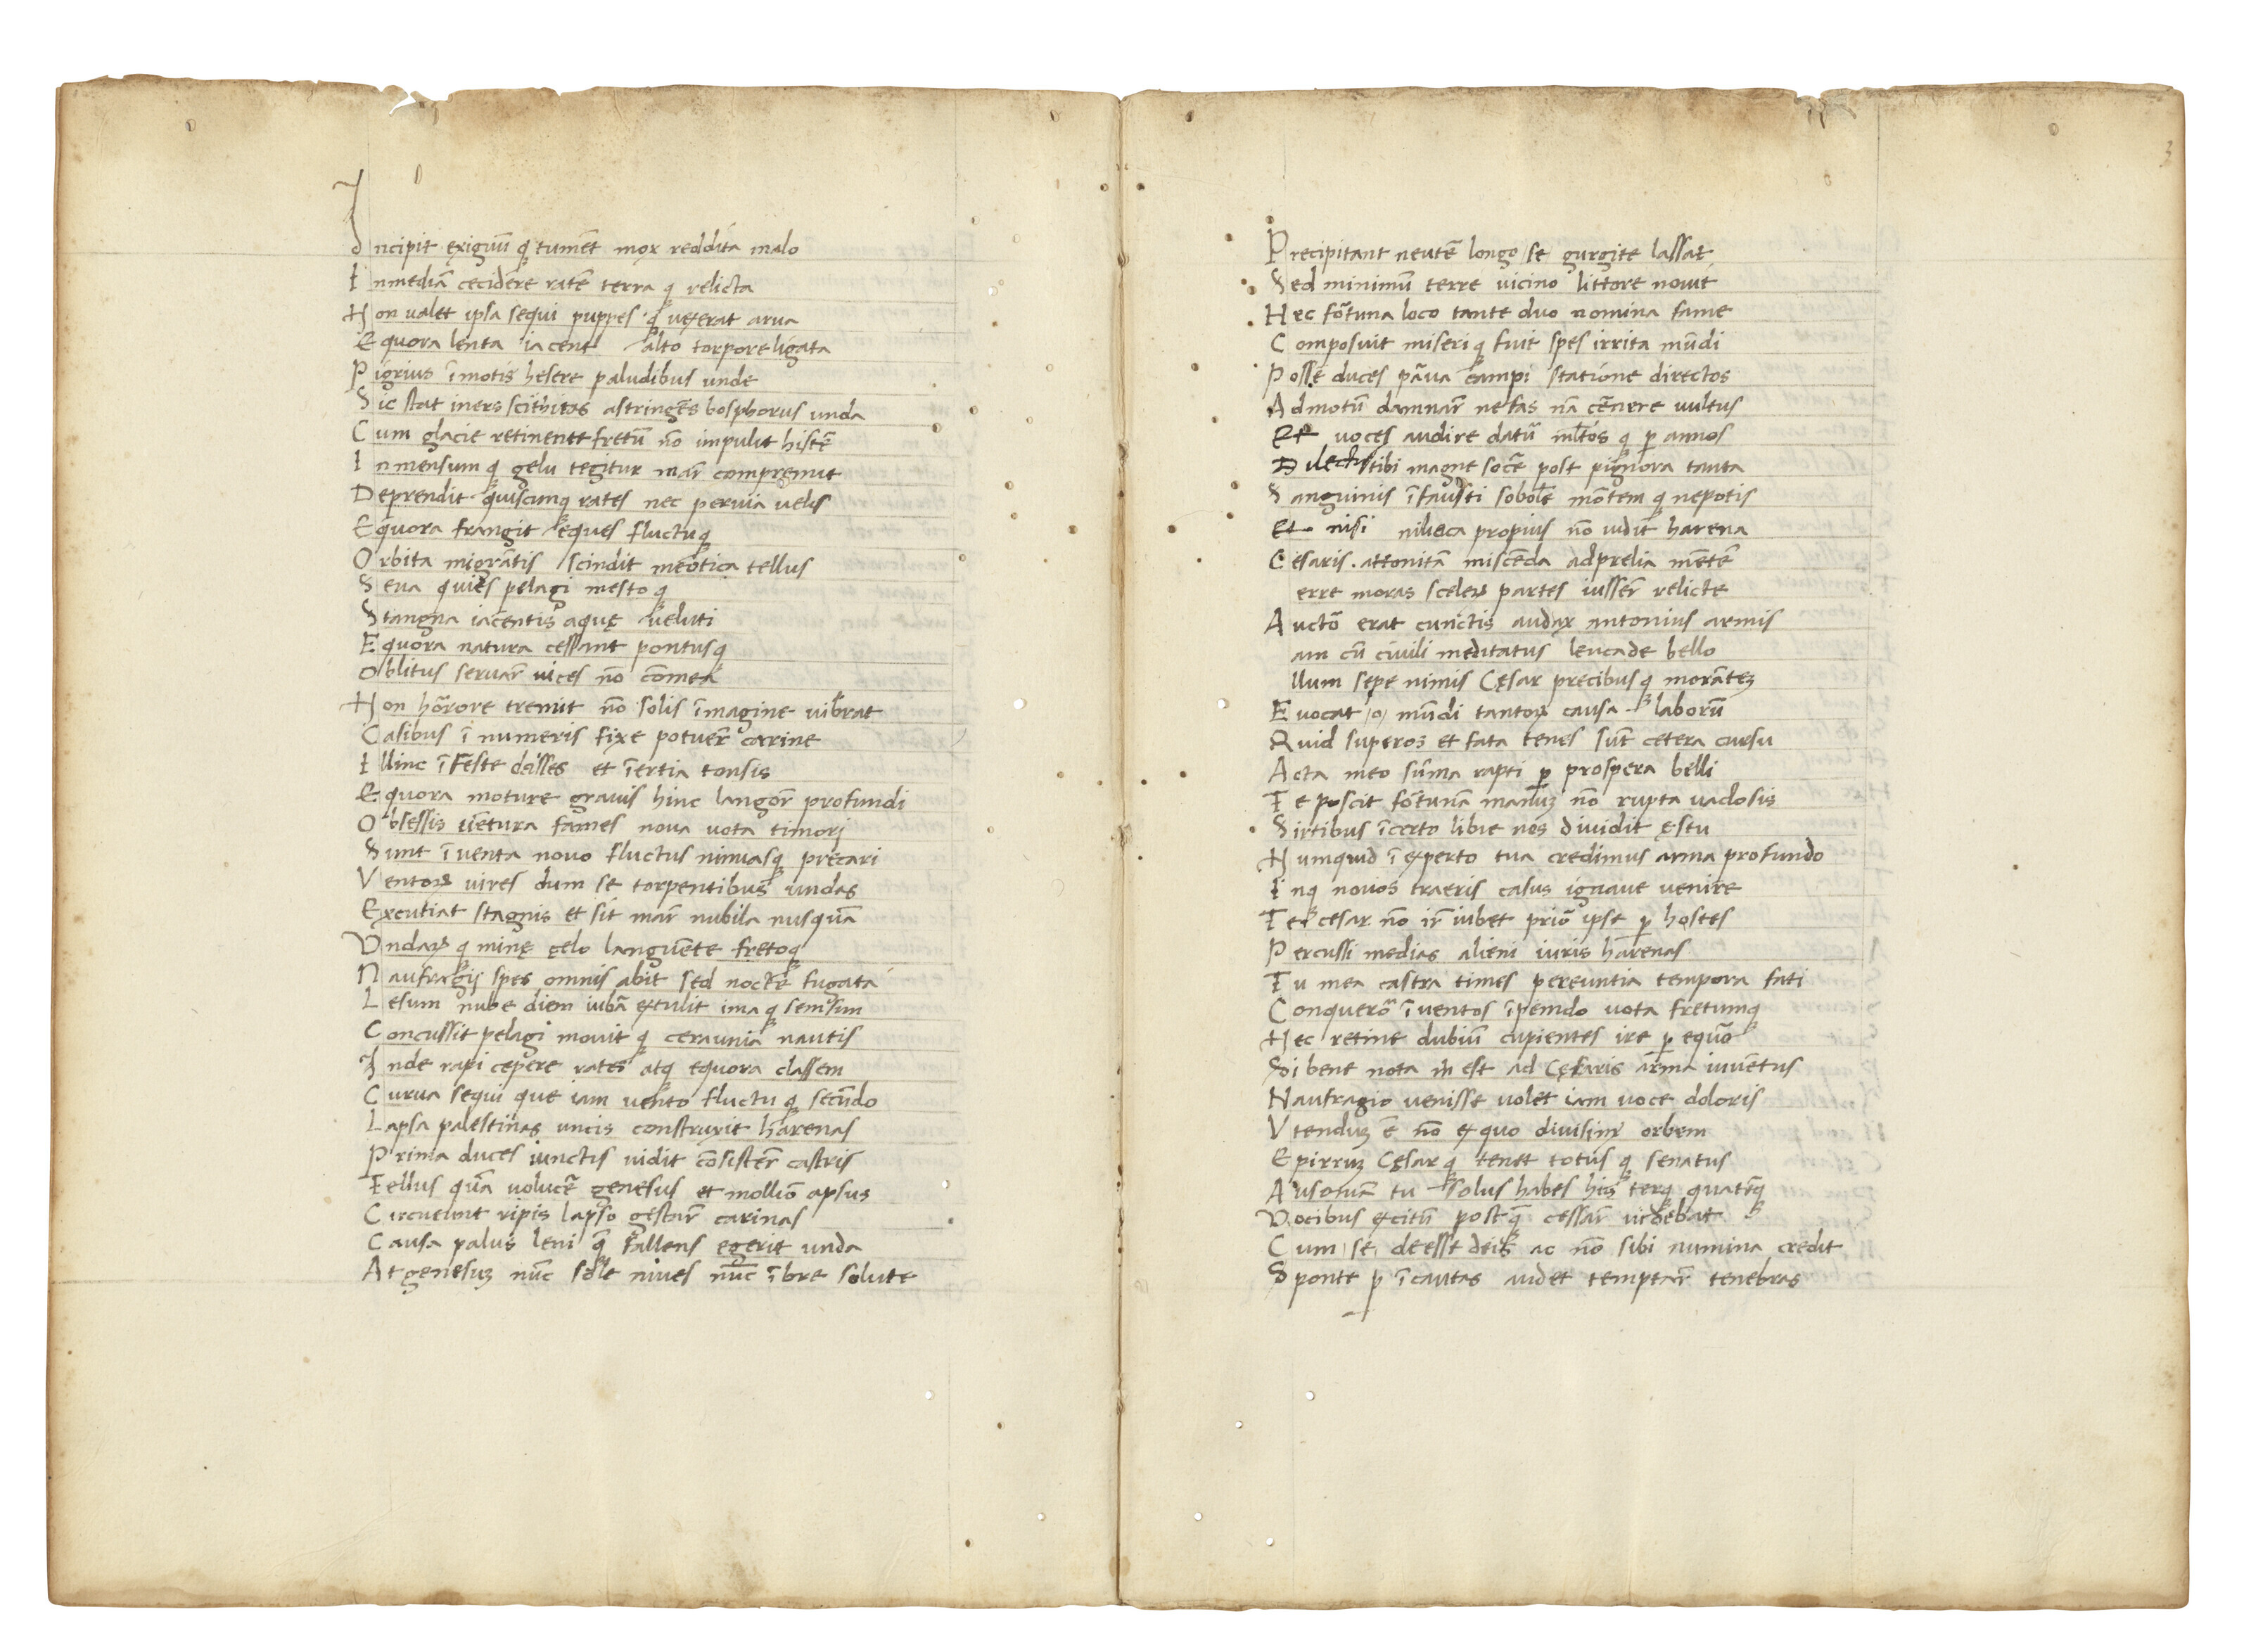 Incipit exiguũ q tumẽt mox reddita malo
Inmediã cecidere ratẽ terra q relicta
Non ualet ipsa sequi puppes q uexerat aura
Equora lenta iacent alto torpore ligata
Pigrius ĩmotis hesere paludibus unde
Sic stat iners scithicas astringẽs bosphorus unda
Cum glacie retinente fretũ nõ impulit histẽ
Inmensum q gelu tegitur mar̃ compremit
Deprendit quascunq rates nec peruia uelis
Equora frangit eques fluctuq
Orbita migrãtis scindit meotica tellus
Seua quies pelagi mesto q
Stangna iacentis aquę ueluti
Equora natura cessant pontusq
Oblitus seruar̃ uices nõ cõmeat
Non hõrore tremit nõ solis ĩmagine uibrat
Casibus ĩ numeris fixe potuer̃ carine
Illinc ĩfeste classes et ĩertia tonsis
Equora moture grauis hinc langor̃ profundi
Obsessis uẽtura fames noua uota timori
Sunt ĩuenta nouo fluctus nimiasq precari
Ventoꝝ uires dum se torpentibus undas
Excutiat stagnis et sit mar̃ nubila nusquã
Vndaꝝ q minę celo languẽte fretoq
Naufragij spes omnis abit sed nocte fugata
Lesum nube diem iubã extulit ima q sensim
Concussit pelagi mouit q ceraunia nautis
Inde rapi cepere rates atq equora classem
Curua sequi que iam uento fluctu q secũdo
Lapsa palestinas uncis construxit harenas
Prima duces iunctis uidit cõsister̃ castris
Tellus quã volucr̃ genesus et molliõ apsus
Circueunt ripis lapso gestar̃ carinas
Causa palus leni q̃ fallens egerit unda
At genesuȝ nũc sole niues nũc ĩbre solute
Precipitant neutẽ longo se gurgite lassat
Sed minimũ terre uicino littore nouit
Hec fõtuna loco tante duo nomina fame
Composuit miseri q fuit spes irrita mũdi
Posse duces pãua campi statione directos
Admotũ damnar̃ nefas nã cẽnere uultus
Et uoces audire datũ mltõs q ꝑ annos
Dilectus tibi magne socẽ post pignora tanta
Sanguinis ĩfausti sobole mõtem q nepotis
Et nisi niliaca propius nõ uidit harena
Cesaris attonitã miscẽda adprelia mẽtẽ
erre moras sceleꝝ partes iusser̃ relicte
Auctõ erat cunctis audax antonius armis
am cũ ciuili meditatus leucade bello
llum sepe nimis Cęsar precibus q morãteȝ
Euocat o mũdi tantoꝝ causa laborũ
Quid superos et fata tenes sũt cetera cursu
Acta meo sũma rapti ꝑ prospera belli
Te poscit fõtunã manuȝ nõ rupta uadosis
Sirtibus ĩcerto libie nos diuidit ęstu
Numquid ĩ experto tua credimus arma profundo
Inq nouos traeris casus ignaue uenire
Te cesar nõ ir̃ iubet priõ ipse ꝑ hostes
Percussi medias alieni iuris harenas
Tu mea castra times pereuntia tempora fati
Conquerõ ĩ uentos ĩpendo uota fretumq
Nec retine dubiũ cupientes ire ꝑ equõ
Si bene nota m̃ est ad Cęsaris arma iuuẽtus
Naufragio uenisse uolet iam uoce doloris
Vtenduȝ ẽ nõ ex quo diuisim̃ orbem
Epirruȝ Cęsar q tenet totus q senatus
Ausoniã tu solus habes his terq quatq̃
Vocibus excitũ postq̃ cessar̃ uidebat
Cum se deesse deis ac nõ sibi numina credit
Sponte ꝑ ĩcautas audet temptar̃ tenebras